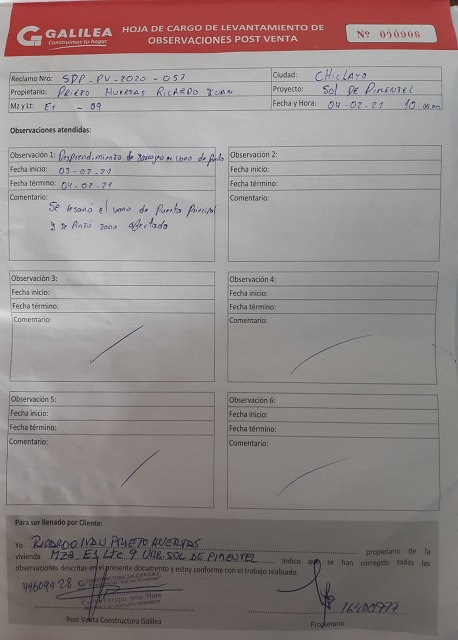 GALILEA
Construimos tu hogar
HOJA DE CARGO DE LEVANTAMIENTO DE
OBSERVACIONES POST VENTA
Nº 090906
Reclamo Nro: SDP-PV-2020-057
Ciudad: CHICLAYO
Propietario: PRIETO HUERTAS RICARDO IVAN
Proyecto: SOL DE PIMENTEL
Mz y Lt: E1 - 09
Fecha y Hora: 04-02-21 10:00 am
Observaciones atendidas:
Observación 1: Desprendimiento de tarrajeo en vano de puerta
Fecha inicio: 03-02-21
Fecha término: 04-02-21
Comentario: Se resanó el vano de Puerta Principal
y se Pintó zona afectada
Observación 2:
Fecha inicio:
Fecha término:
Comentario:
Observación 3:
Fecha inicio:
Fecha término:
Comentario:
Observación 4:
Fecha inicio:
Fecha término:
Comentario:
Observación 5:
Fecha inicio:
Fecha término:
Comentario:
Observación 6:
Fecha inicio:
Fecha término:
Comentario:
Para ser llenado por Cliente:
Yo RICARDO IVAN PRIETO HUERTAS propietario de la
vivienda MZA E1 LTE. 9 URB. SOL DE PIMENTEL indico que se han corregido todas las
observaciones descritas en el presente documento y estoy conforme con el trabajo realizado.
44609928
CONSTRUCTORA GALILEA S.A.C.
16400977
Post Venta Constructora Galilea
Propietario